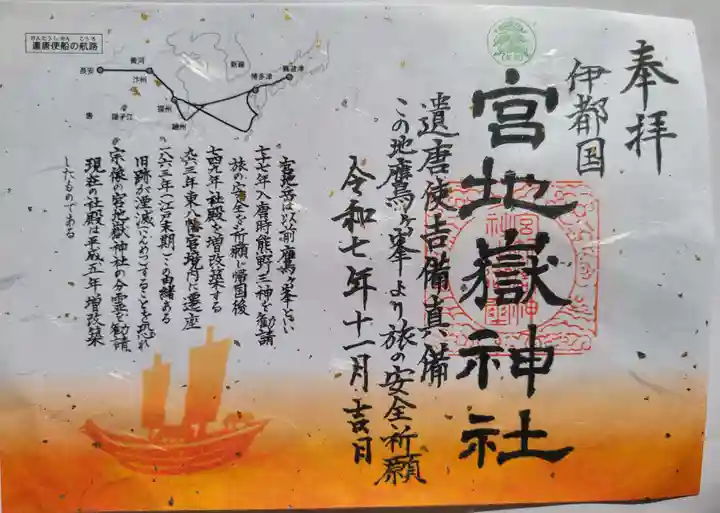 奉拝
伊都国
宮地嶽神社
遣唐使吉備真備
この地鷹ヶ峯より旅の安全祈願
令和七年十一月吉日
宮地岳は以前鷹ヶ峯といい
七一七年入唐時熊野三神を勧請
旅の安全を祈願し帰国後
七四九年社殿を増改築する
九六三年東八幡宮境内に遷座
一八六三年(江戸末期)この由緒ある
旧跡が湮滅(いんめつ)することを恐れ
宗像の宮地嶽神社の分霊を勧請
現在の社殿は平成五年増改築
したものである
けんとうしせん こうろ
遣唐使船の航路
長安
黄河
汴州
新羅
博多津
難波津
楚州
揚州
唐
揚子江